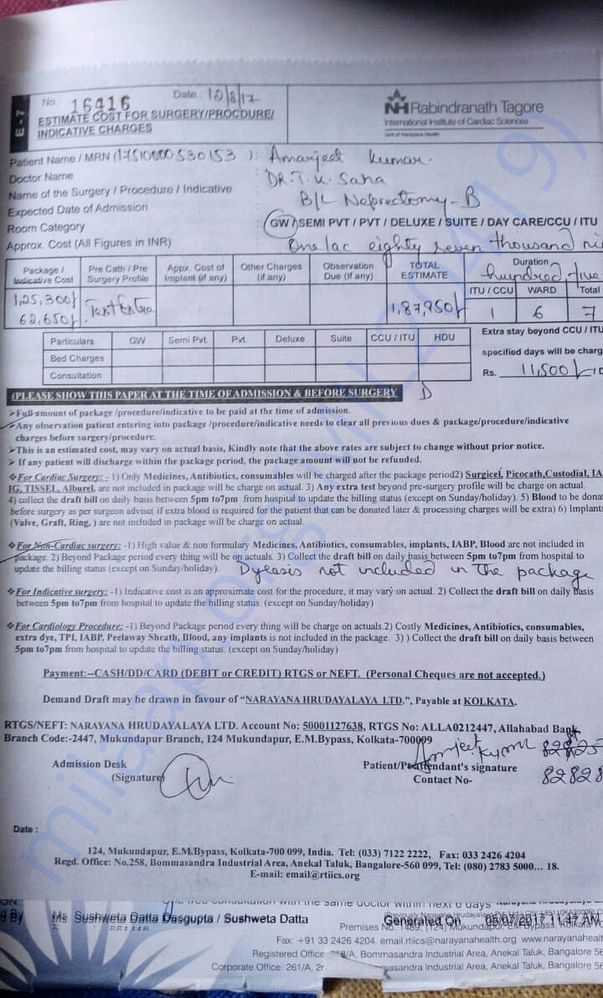 E-7
No. 16416 Date. 12/8/17
ESTIMATE COST FOR SURGERY/PROCDURE/
INDICATIVE CHARGES
NH Rabindranath Tagore
International Institute of Cardiac Sciences
Unit of Narayana Health
Patient Name / MRN (17510000530153) : Amarjeet Kumar.
Doctor Name : DR. T. K. Saha
Name of the Surgery / Procedure / Indicative : B/L Neprectomy - B
Expected Date of Admission :
Room Category : GW / SEMI PVT / PVT / DELUXE / SUITE / DAY CARE/CCU / ITU
Approx. Cost (All Figures in INR) One lac eighty seven thousand
hundred five
Package / Indicative Cost Pre Cath / Pre Surgery Profile Appx. Cost of Implant (if any) Other Charges (if any) Observation Due (If any) TOTAL ESTIMATE Duration
ITU / CCU WARD Total
1,25,300/- Test Extra 1,87,950/- 1 6 7
62,650/-
Particulars GW Semi Pvt. Pvt. Deluxe Suite CCU / ITU HDU
Bed Charges
Consultation
Extra stay beyond CCU / ITU
specified days will be charg
Rs. 11,500/-
(PLEASE SHOW THIS PAPER AT THE TIME OF ADMISSION & BEFORE SURGERY
➢Full amount of package /procedure/indicative to be paid at the time of admission.
➢Any observation patient entering into package /procedure/indicative needs to clear all previous dues & package/procedure/indicative
charges before surgery/procedure.
➢This is an estimated cost, may vary on actual basis, Kindly note that the above rates are subject to change without prior notice.
➢ If any patient will discharge within the package period, the package amount will not be refunded.
❖For Cardiac Surgery: - 1) Only Medicines, Antibiotics, consumables will be charged after the package period2) Surgicel, Picocath,Custodial, IA
IG, TISSEL, Alburel, are not included in package will be charge on actual. 3) Any extra test beyond pre-surgery profile will be charge on actual.
4) collect the draft bill on daily basis between 5pm to7pm from hospital to update the billing status (except on Sunday/holiday). 5) Blood to be dona
before surgery as per surgeon advise( if extra blood is required for the patient that can be donated later & processing charges will be extra) 6) Implants
(Valve, Graft, Ring, ) are not included in package will be charge on actual.
❖For Non-Cardiac surgery: -1) High value & non formulary Medicines, Antibiotics, consumables, implants, IABP, Blood are not included in
package. 2) Beyond Package period every thing will be on actuals. 3) Collect the draft bill on daily basis between 5pm to7pm from hospital to
update the billing status (except on Sunday/holiday). Dyeasis not included in the package
❖For Indicative surgery: -1) Indicative cost is an approximate cost for the procedure, it may vary on actual. 2) Collect the draft bill on daily basis
between 5pm to7pm from hospital to update the billing status. (except on Sunday/holiday)
❖For Cardiology Procedure: -1) Beyond Package period every thing will be charge on actuals.2) Costly Medicines, Antibiotics, consumables,
extra dye, TPI, IABP, Peelaway Sheath, Blood, any implants is not included in the package. 3) ) Collect the draft bill on daily basis between
5pm to7pm from hospital to update the billing status. (except on Sunday/holiday)
Payment:--CASH/DD/CARD (DEBIT or CREDIT) RTGS or NEFT. (Personal Cheques are not accepted.)
Demand Draft may be drawn in favour of “NARAYANA HRUDAYALAYA LTD.”, Payable at KOLKATA.
RTGS/NEFT: NARAYANA HRUDAYALAYA LTD. Account No: 50001127638, RTGS No: ALLA0212447, Allahabad Bank
Branch Code:-2447, Mukundapur Branch, 124 Mukundapur, E.M.Bypass, Kolkata-700099
Amrjeet Kumar 82825
Admission Desk Patient/P attendant's signature
(Signature) Contact No- 82828
Date :
124, Mukundapur, E.M.Bypass, Kolkata-700 099, India. Tel: (033) 7122 2222, Fax: 033 2426 4204
Regd. Office: No.258, Bommasandra Industrial Area, Anekal Taluk, Bangalore-560 099, Tel: (080) 2783 5000... 18.
E-mail: email@rtiics.org
consultation with the same doctor within next 6 days
By Ms. Sushweta Datta Dasgupta / Sushweta Datta Generated On 05/07/2017 11:47 AM
Premises No. 1489, (124) Mukundapur, EM Bypass, Kolkata
Fax: +91 33 2426 4204. email.rtiics@narayanahealth.org www.narayanahealth
Registered Office /A, Bommasandra Industrial Area, Anekal Taluk, Bangalore 56
Corporate Office: 261/A, 2 Bommasandra Industrial Area, Anekal Taluk, Bangalore 56